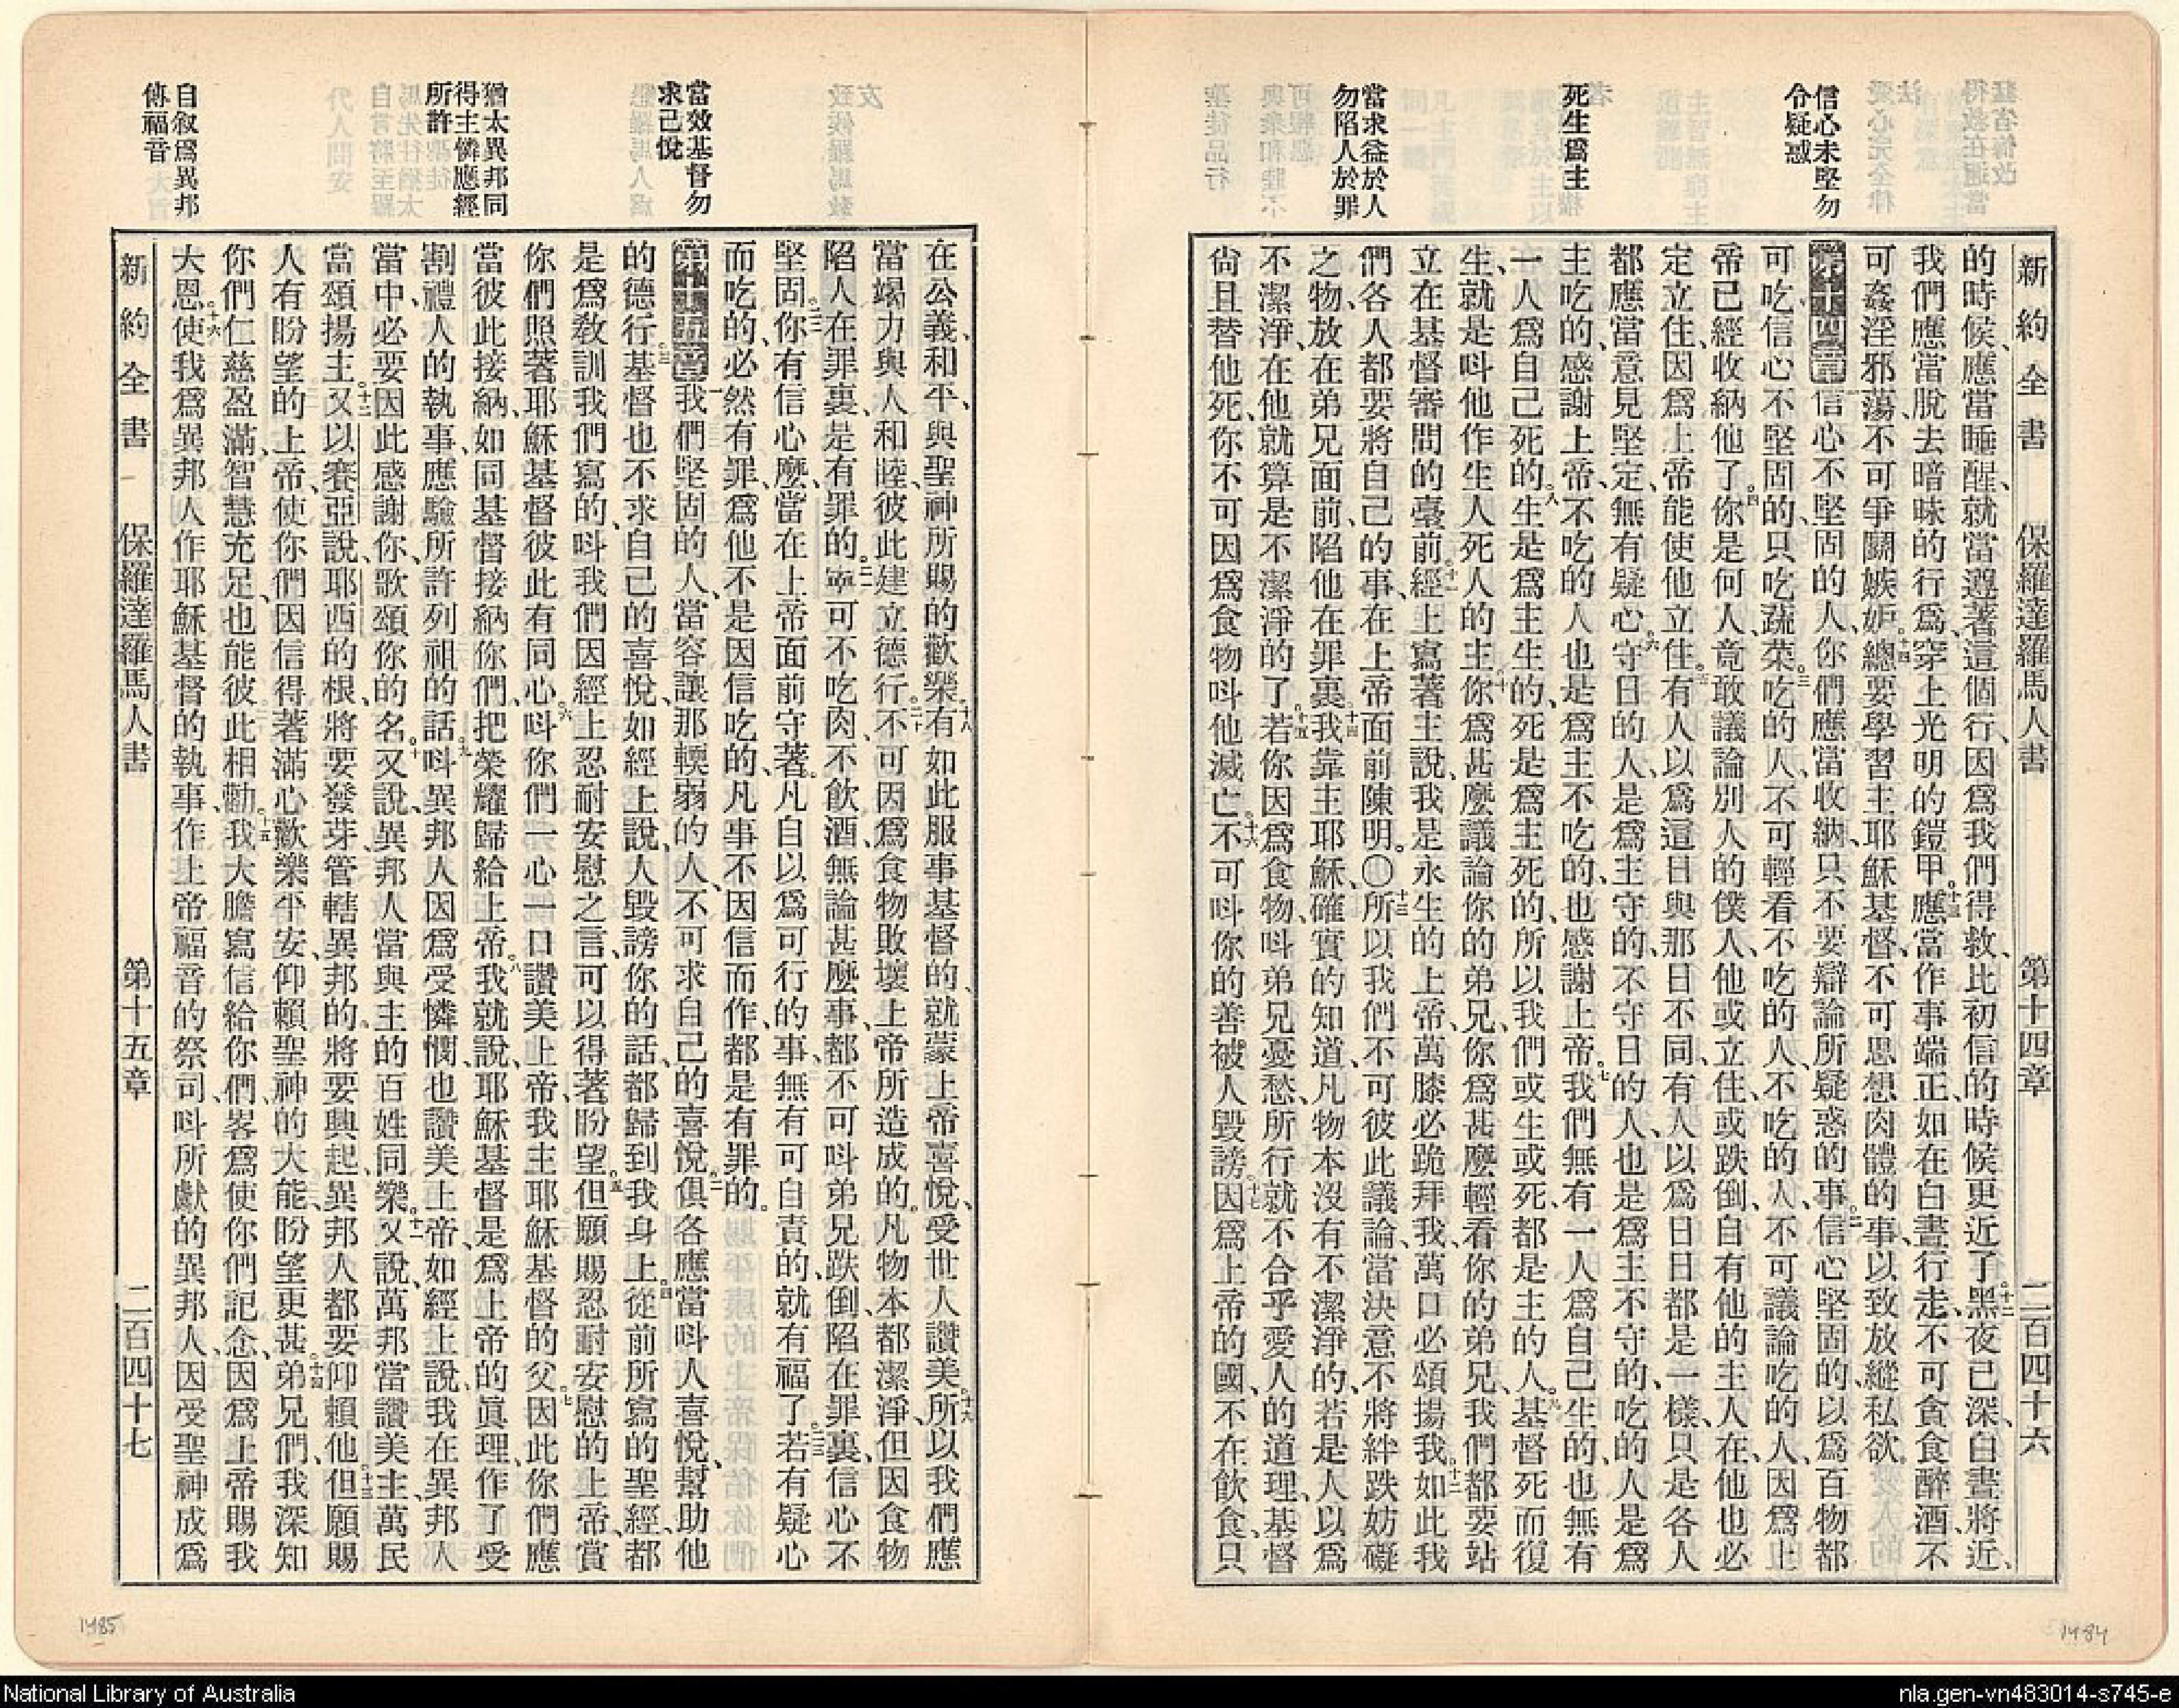 信心未堅勿
令疑惑
死生爲主
當求益於人
勿陷人於罪
新約全書 保羅達羅馬人書 第十四章 二百四十六
的時候、應當睡醒、就當遵著這個行、因爲我們得救、比初信的時候更近了。十二黑夜已深、白晝將近、
我們應當脫去暗昧的行爲、穿上光明的鎧甲。十三應當作事端正、如在白晝行走、不可貪食醉酒、不
可姦淫邪蕩、不可爭鬭嫉妬。十四總要學習主耶穌基督、不可思想肉體的事、以致放縱私欲。
第十四章一信心不堅固的人、你們應當收納、只不要辯論所疑惑的事。二信心堅固的、以爲百物都
可吃、信心不堅固的、只吃蔬菜。三吃的人、不可輕看不吃的人、不吃的人、不可議論吃的人、因爲上
帝已經收納他了。四你是何人、竟敢議論別人的僕人、他或立住、或跌倒、自有他的主人在、他也必
定立住、因爲上帝能使他立住。五有人以爲這日與那日不同、有人以爲日日都是一樣、只是各人
都應當意見堅定、無有疑心。六守日的人、是爲主守的、不守日的人、也是爲主不守的、吃的人是爲
主吃的、感謝上帝、不吃的人也是爲主不吃的、也感謝上帝。七我們無有一人爲自己生的、也無有
一人爲自己死的。八生是爲主生的、死是爲主死的、所以我們或生或死、都是主的人。九基督死而復
生、就是呌他作生人死人的主。十你爲甚麼議論你的弟兄、你爲甚麼輕看你的弟兄、我們都要站
立在基督審問的臺前。十一經上寫著主說、我是永生的上帝、萬膝必跪拜我、萬口必頌揚我。十二如此我
們各人都要將自己的事、在上帝面前陳明。〇十三所以我們不可彼此議論、當決意不將絆跌妨礙
之物、放在弟兄面前、陷他在罪裏。十四我靠主耶穌、確實的知道、凡物本沒有不潔淨的、若是人以爲
不潔淨、在他就算是不潔淨的了。十五若你因爲食物、呌弟兄憂愁、所行就不合乎愛人的道理、基督
尙且替他死、你不可因爲食物呌他滅亡。十六不可呌你的善被人毀謗。十七因爲上帝的國、不在飲食、只
當效基督勿
求己悅
猶太異邦同
得主憐應經
所許
自叙爲異邦
傳福音
在公義、和平、與聖神所賜的歡樂。十八有如此服事基督的、就蒙上帝喜悅、受世人讚美。十九所以我們應
當竭力與人和睦、彼此建立德行。二十不可因爲食物敗壞上帝所造成的。凡物本都潔淨、但因食物
陷人在罪裏、是有罪的。二一寧可不吃肉、不飲酒、無論甚麼事、都不可呌弟兄跌倒、陷在罪裏、信心不
堅固。二二你有信心麼、當在上帝面前守著。凡自以爲可行的事、無有可自責的、就有福了。二三若有疑心
而吃的、必然有罪、爲他不是因信吃的、凡事不因信而作、都是有罪的。
第十五章一我們堅固的人、當容讓那輭弱的人、不可求自己的喜悅。二俱各應當呌人喜悅、幫助他
的德行。三基督也不求自己的喜悅、如經上說、人毀謗你的話、都歸到我身上。四從前所寫的聖經、都
是爲敎訓我們寫的、呌我們因經上忍耐安慰之言、可以得著盼望。五但願賜忍耐安慰的上帝、賞
你們照著耶穌基督彼此有同心。六呌你們一心一口讚美上帝、我主耶穌基督的父。七因此你們應
當彼此接納、如同基督接納你們、把榮耀歸給上帝。八我就說、耶穌基督是爲上帝的眞理、作了受
割禮人的執事、應驗所許列祖的話。九呌異邦人因爲受憐憫、也讚美上帝、如經上說、我在異邦人
當中、必要因此感謝你、歌頌你的名。十又說、異邦人當與主的百姓同樂。十一又說、萬邦當讚美主、萬民
當頌揚主。十二又以賽亞說、耶西的根、將要發芽、管轄異邦的。將要興起、異邦人都要仰賴他。十三但願賜
人有盼望的上帝、使你們因信得著滿心歡樂平安、仰賴聖神的大能、盼望更甚。十四弟兄們、我深知
你們仁慈盈滿、智慧充足、也能彼此相勸。十五我大膽寫信給你們、畧爲使你們記念、因爲上帝賜我
大恩。十六使我爲異邦人作耶穌基督的執事、作上帝福音的祭司、呌所獻的異邦人、因受聖神成爲
新約全書 保羅達羅馬人書 第十五章 二百四十七
1485
1484
National Library of Australia
nla.gen-vn483014-s745-e